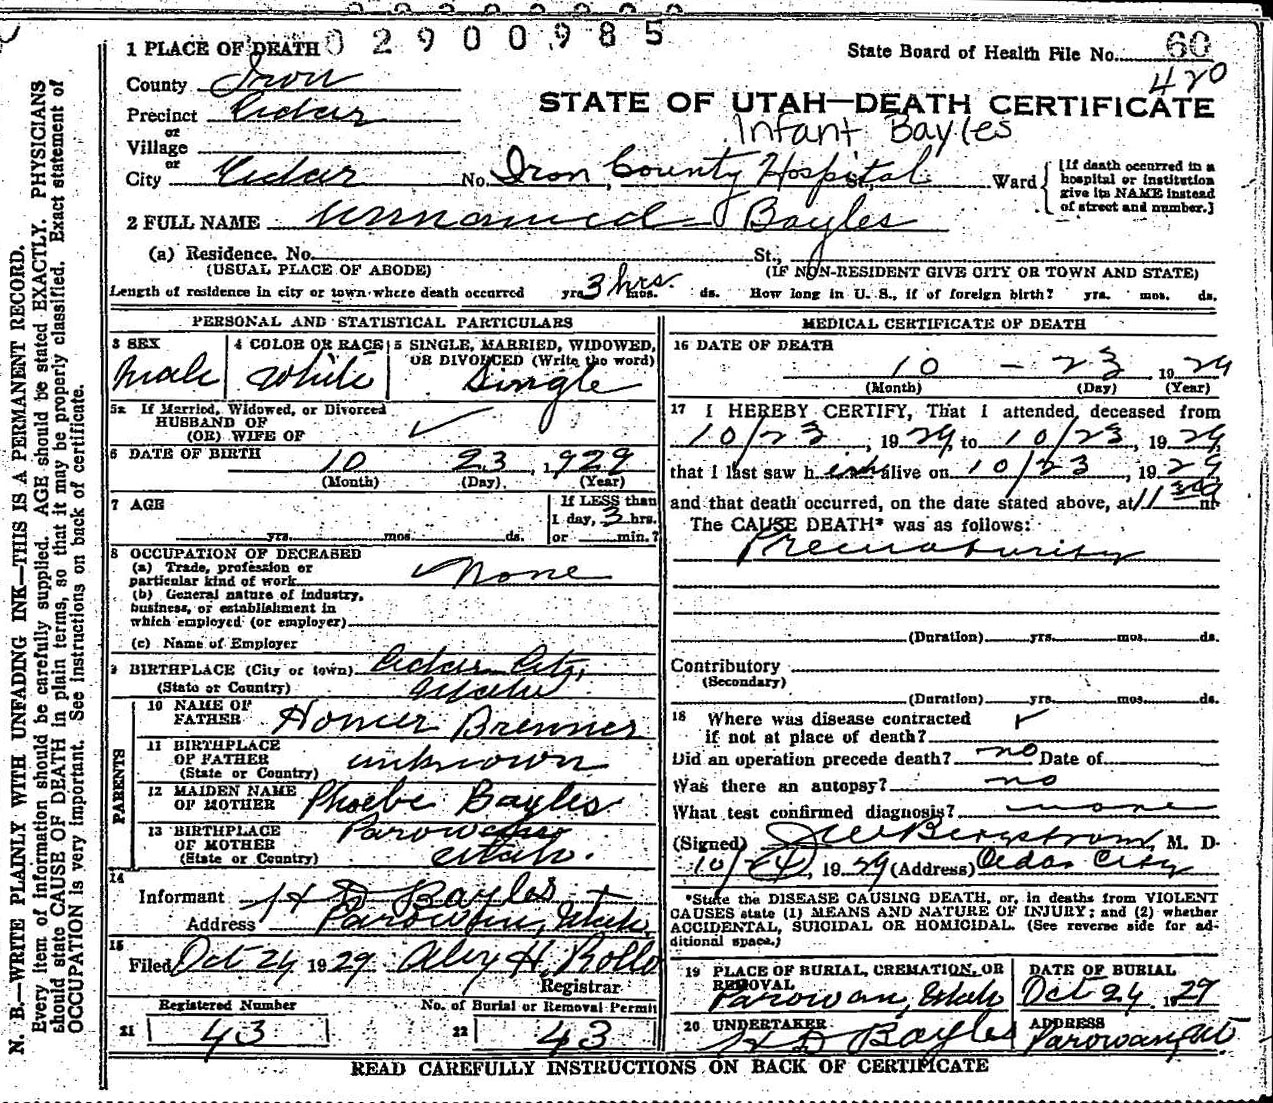 02900985
1 PLACE OF DEATH State Board of Health File No. 60
420
County Iron
STATE OF UTAH—DEATH CERTIFICATE
Precinct Cedar
Infant Bayles
or
Village
or
City Cedar No. Iron County Hospital St., Ward
[If death occurred in a
hospital or institution
give its NAME instead
of street and number.]
2 FULL NAME unnamed Bayles
(a) Residence. No. St.,
(USUAL PLACE OF ABODE) (IF NON-RESIDENT GIVE CITY OR TOWN AND STATE)
Length of residence in city or town where death occurred yrs. 3 hrs. mos. ds. How long in U. S., if of foreign birth? yrs. mos. ds.
PERSONAL AND STATISTICAL PARTICULARS
3 SEX
Male
4 COLOR OR RACE
White
5 SINGLE, MARRIED, WIDOWED,
OR DIVORCED (Write the word)
Single
5a If Married, Widowed, or Divorced
HUSBAND OF
(OR) WIFE OF
6 DATE OF BIRTH 10 23, 1929
(Month) (Day) (Year)
7 AGE
If LESS than
1 day, 3 hrs.
yrs. mos. ds. or min.?
8 OCCUPATION OF DECEASED
(a) Trade, profession or
particular kind of work None
(b) General nature of industry,
business, or establishment in
which employed (or employer)
(c) Name of Employer
9 BIRTHPLACE (City or town) Cedar City,
(State or Country) Utah
PARENTS
10 NAME OF
FATHER Homer Brenner
11 BIRTHPLACE
OF FATHER
(State or Country) unknown
12 MAIDEN NAME
OF MOTHER Phoebe Bayles
13 BIRTHPLACE
OF MOTHER
(State or Country) Parowan
Utah.
14
Informant H D Bayles
Address Parowan, Utah
15
Filed Oct 24 1929 Alex H. Rollo
Registrar
Registered Number No. of Burial or Removal Permit
21 43 22 43
MEDICAL CERTIFICATE OF DEATH
16 DATE OF DEATH
10 - 23 1929
(Month) (Day) (Year)
17 I HEREBY CERTIFY, That I attended deceased from
10/23, 1929, to 10/23, 1929,
that I last saw h im alive on 10/23, 1929
and that death occurred, on the date stated above, at 11 30 m
The CAUSE DEATH* was as follows:
Prematurity
(Duration) yrs. mos. ds.
Contributory
(Secondary)
(Duration) yrs. mos. ds.
18 Where was disease contracted
if not at place of death?
Did an operation precede death? no Date of
Was there an autopsy? no
What test confirmed diagnosis? none
(Signed) J W Bergstrom, M. D.
10/24, 1929 (Address) Cedar City
*State the DISEASE CAUSING DEATH, or, in deaths from VIOLENT
CAUSES state (1) MEANS AND NATURE OF INJURY; and (2) whether
ACCIDENTAL, SUICIDAL OR HOMICIDAL. (See reverse side for ad-
ditional space.)
19 PLACE OF BURIAL, CREMATION, OR
REMOVAL
Parowan, Utah
DATE OF BURIAL
Oct 24 1929
20 UNDERTAKER
H D Bayles
ADDRESS
Parowan, Ut
READ CAREFULLY INSTRUCTIONS ON BACK OF CERTIFICATE
N. B.—WRITE PLAINLY WITH UNFADING INK—THIS IS A PERMANENT RECORD.
Every item of information should be carefully supplied. AGE should be stated EXACTLY. PHYSICIANS
should state CAUSE OF DEATH in plain terms, so that it may be properly classified. Exact statement of
OCCUPATION is very important. See instructions on back of certificate.